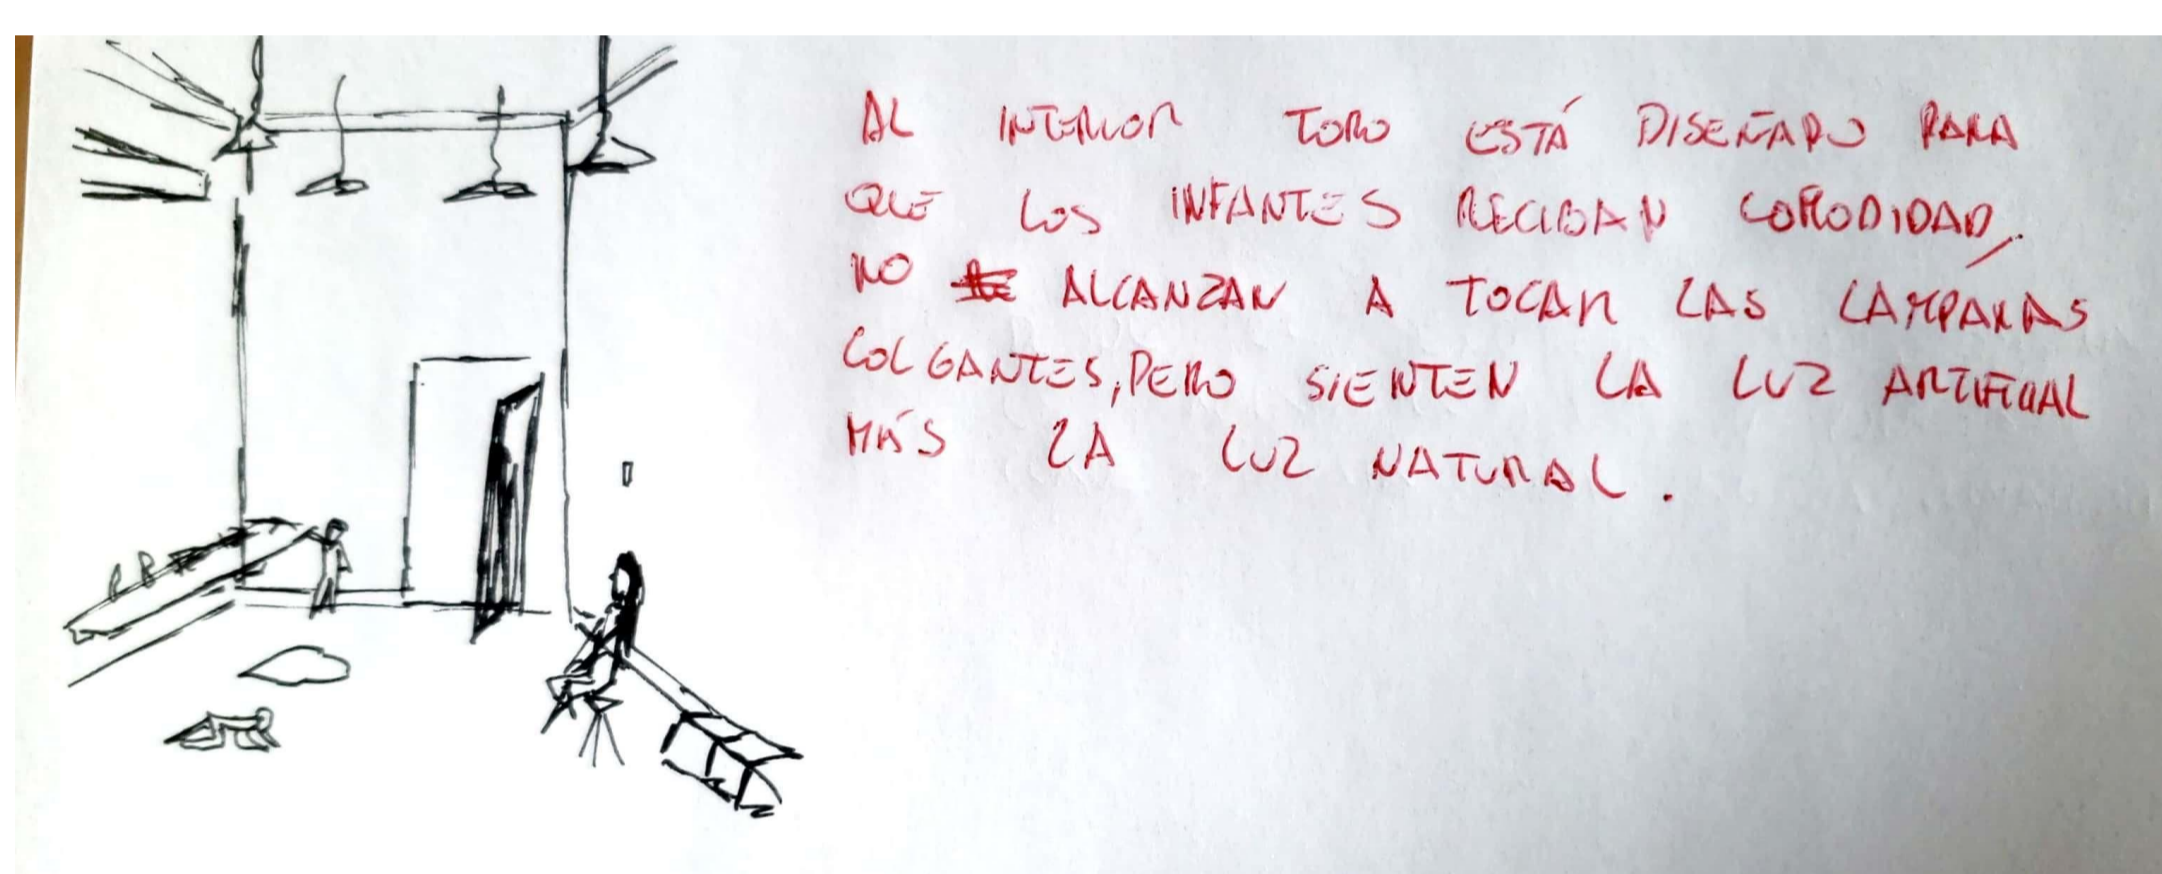 AL INTERIOR TODO ESTÁ DISEÑADO PARA
QUE LOS INFANTES RECIBAN COMODIDAD,
NO ALCANZAN A TOCAR LAS LÁMPARAS
COLGANTES, PERO SIENTEN LA LUZ ARTIFICIAL
MÁS LA LUZ NATURAL.